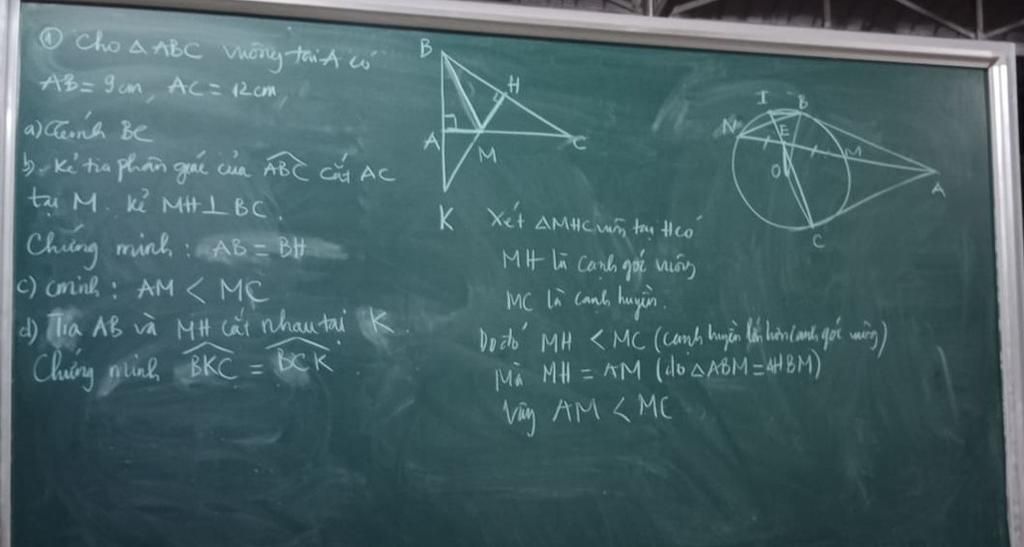 ① Cho △ABC vuông tại A có
AB = 9cm, AC = 12cm,
a) Tính BC
b) Kẻ tia phân giác của ABC cắt AC
tại M. kẻ MH ⊥ BC.
Chứng minh: AB = BH
c) cminh: AM < MC
d) Tia AB và MH cắt nhau tại K.
Chứng minh BKC = BCK
B
H
A
M
C
K
Xét △MHC vuông tại H có
MH là cạnh góc vuông
MC là cạnh huyền.
Do đó MH < MC (cạnh huyền lớn hơn cạnh góc vuông)
Mà MH = AM (do △ABM = △HBM)
Vậy AM < MC
I
B
N
E
M
O
A
C